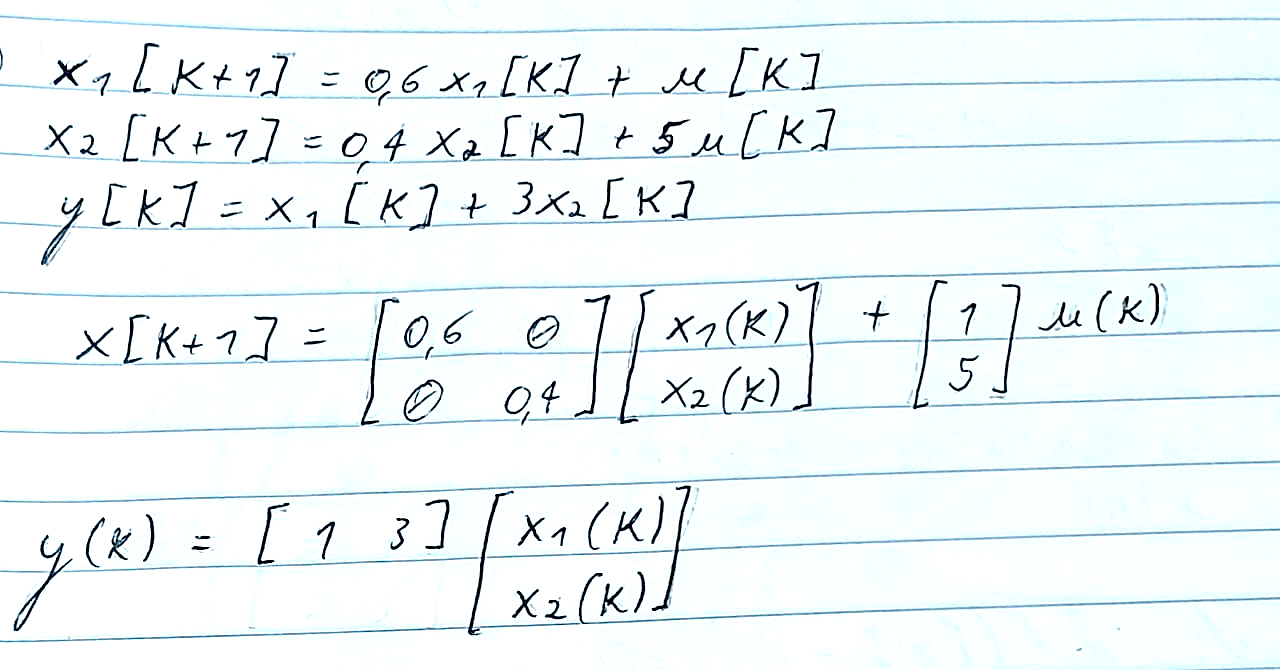 x₁[K+1] = 0,6 x₁[K] + u[K]
x₂[K+1] = 0,4 x₂[K] + 5u[K]
y[K] = x₁[K] + 3x₂[K]
x[K+1] = [0,6 0; 0 0,4] [x₁(K); x₂(K)] + [1; 5] u(K)
y(K) = [1 3] [x₁(K); x₂(K)]